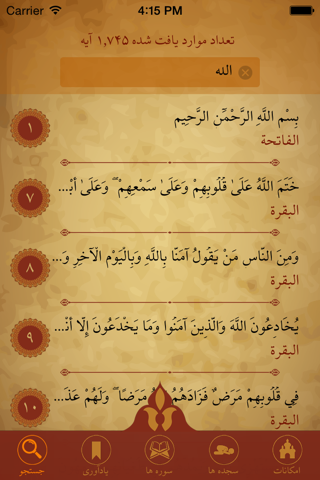 Carrier 4:15 PM
تعداد موارد یافت شده ۱,۷۴۵ آیه
الله
بِسْمِ اللَّهِ الرَّحْمَٰنِ الرَّحِيمِ
۱
الفاتحة
خَتَمَ اللَّهُ عَلَىٰ قُلُوبِهِمْ وَعَلَىٰ سَمْعِهِمْ ۖ وَعَلَىٰ أَبْ...
۷
البقرة
وَمِنَ النَّاسِ مَنْ يَقُولُ آمَنَّا بِاللَّهِ وَبِالْيَوْمِ الْآخِرِ وَ...
۸
البقرة
يُخَادِعُونَ اللَّهَ وَالَّذِينَ آمَنُوا وَمَا يَخْدَعُونَ إِلَّا أَنْ...
۹
البقرة
فِي قُلُوبِهِمْ مَرَضٌ فَزَادَهُمُ مَرَضًا ۖ وَلَهُمْ عَذَ...
۱۰
البقرة
امکانات سجده ها سوره ها یادآوری جستجو